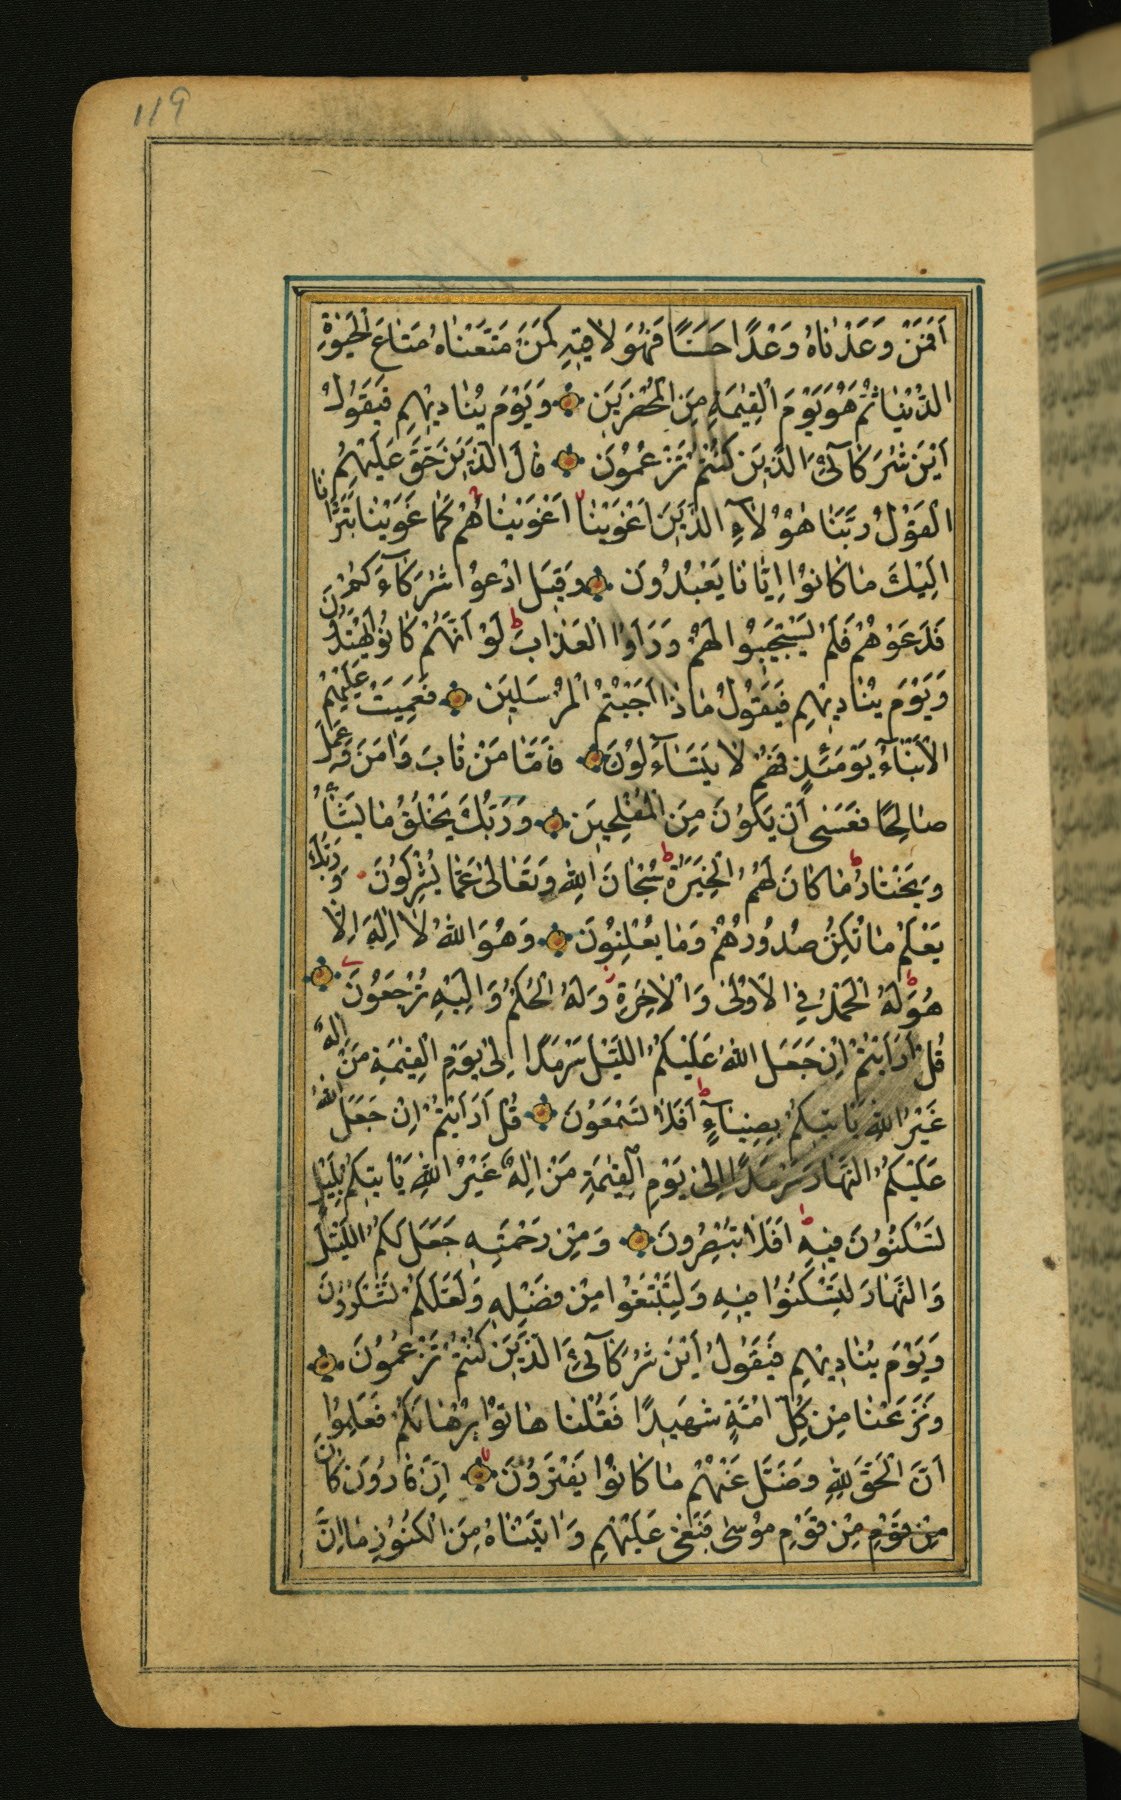 119
اَفَمَنْ وَعَدْنَاهُ وَعْدًا حَسَنًا فَهُوَ لَاقِيهِ كَمَنْ مَتَّعْنَاهُ مَتَاعَ الْحَيٰوةِ
الدُّنْيَا ثُمَّ هُوَ يَوْمَ الْقِيٰمَةِ مِنَ الْمُحْضَرِينَ وَيَوْمَ يُنَادِيهِمْ فَيَقُولُ
اَيْنَ شُرَكَآئِيَ الَّذِينَ كُنْتُمْ تَزْعُمُونَ قَالَ الَّذِينَ حَقَّ عَلَيْهِمُ
الْقَوْلُ رَبَّنَا هٰؤُلَاءِ الَّذِينَ اَغْوَيْنَا اَغْوَيْنَاهُمْ كَمَا غَوَيْنَا تَبَرَّاْنَا
اِلَيْكَ مَا كَانُوا اِيَّانَا يَعْبُدُونَ وَقِيلَ ادْعُوا شُرَكَآءَكُمْ
فَدَعَوْهُمْ فَلَمْ يَسْتَجِيبُوا لَهُمْ وَرَاَوُا الْعَذَابَ لَوْ اَنَّهُمْ كَانُوا يَهْتَدُونَ
وَيَوْمَ يُنَادِيهِمْ فَيَقُولُ مَاذَا اَجَبْتُمُ الْمُرْسَلِينَ فَعَمِيَتْ عَلَيْهِمُ
الْاَنْبَآءُ يَوْمَئِذٍ فَهُمْ لَا يَتَسَآءَلُونَ فَاَمَّا مَنْ تَابَ وَاٰمَنَ وَعَمِلَ
صَالِحًا فَعَسٰى اَنْ يَكُونَ مِنَ الْمُفْلِحِينَ وَرَبُّكَ يَخْلُقُ مَا يَشَآءُ
وَيَخْتَارُ مَا كَانَ لَهُمُ الْخِيَرَةُ سُبْحَانَ اللّٰهِ وَتَعَالٰى عَمَّا يُشْرِكُونَ وَرَبُّكَ
يَعْلَمُ مَا تُكِنُّ صُدُورُهُمْ وَمَا يُعْلِنُونَ وَهُوَ اللّٰهُ لَا اِلٰهَ اِلَّا
هُوَ لَهُ الْحَمْدُ فِي الْاُولٰى وَالْاٰخِرَةِ وَلَهُ الْحُكْمُ وَاِلَيْهِ تُرْجَعُونَ
قُلْ اَرَاَيْتُمْ اِنْ جَعَلَ اللّٰهُ عَلَيْكُمُ اللَّيْلَ سَرْمَدًا اِلٰى يَوْمِ الْقِيٰمَةِ مَنْ اِلٰهٌ
غَيْرُ اللّٰهِ يَاْتِيكُمْ بِضِيَآءٍ اَفَلَا تَسْمَعُونَ قُلْ اَرَاَيْتُمْ اِنْ جَعَلَ اللّٰهُ
عَلَيْكُمُ النَّهَارَ سَرْمَدًا اِلٰى يَوْمِ الْقِيٰمَةِ مَنْ اِلٰهٌ غَيْرُ اللّٰهِ يَاْتِيكُمْ بِلَيْلٍ
تَسْكُنُونَ فِيهِ اَفَلَا تُبْصِرُونَ وَمِنْ رَحْمَتِهِ جَعَلَ لَكُمُ اللَّيْلَ
وَالنَّهَارَ لِتَسْكُنُوا فِيهِ وَلِتَبْتَغُوا مِنْ فَضْلِهِ وَلَعَلَّكُمْ تَشْكُرُونَ
وَيَوْمَ يُنَادِيهِمْ فَيَقُولُ اَيْنَ شُرَكَآئِيَ الَّذِينَ كُنْتُمْ تَزْعُمُونَ
وَنَزَعْنَا مِنْ كُلِّ اُمَّةٍ شَهِيدًا فَقُلْنَا هَاتُوا بُرْهَانَكُمْ فَعَلِمُوا
اَنَّ الْحَقَّ لِلّٰهِ وَضَلَّ عَنْهُمْ مَا كَانُوا يَفْتَرُونَ اِنَّ قَارُونَ كَانَ
مِنْ قَوْمِ مِنْ قَوْمِ مُوسٰى فَبَغٰى عَلَيْهِمْ وَاٰتَيْنَاهُ مِنَ الْكُنُوزِ مَا اِنَّ